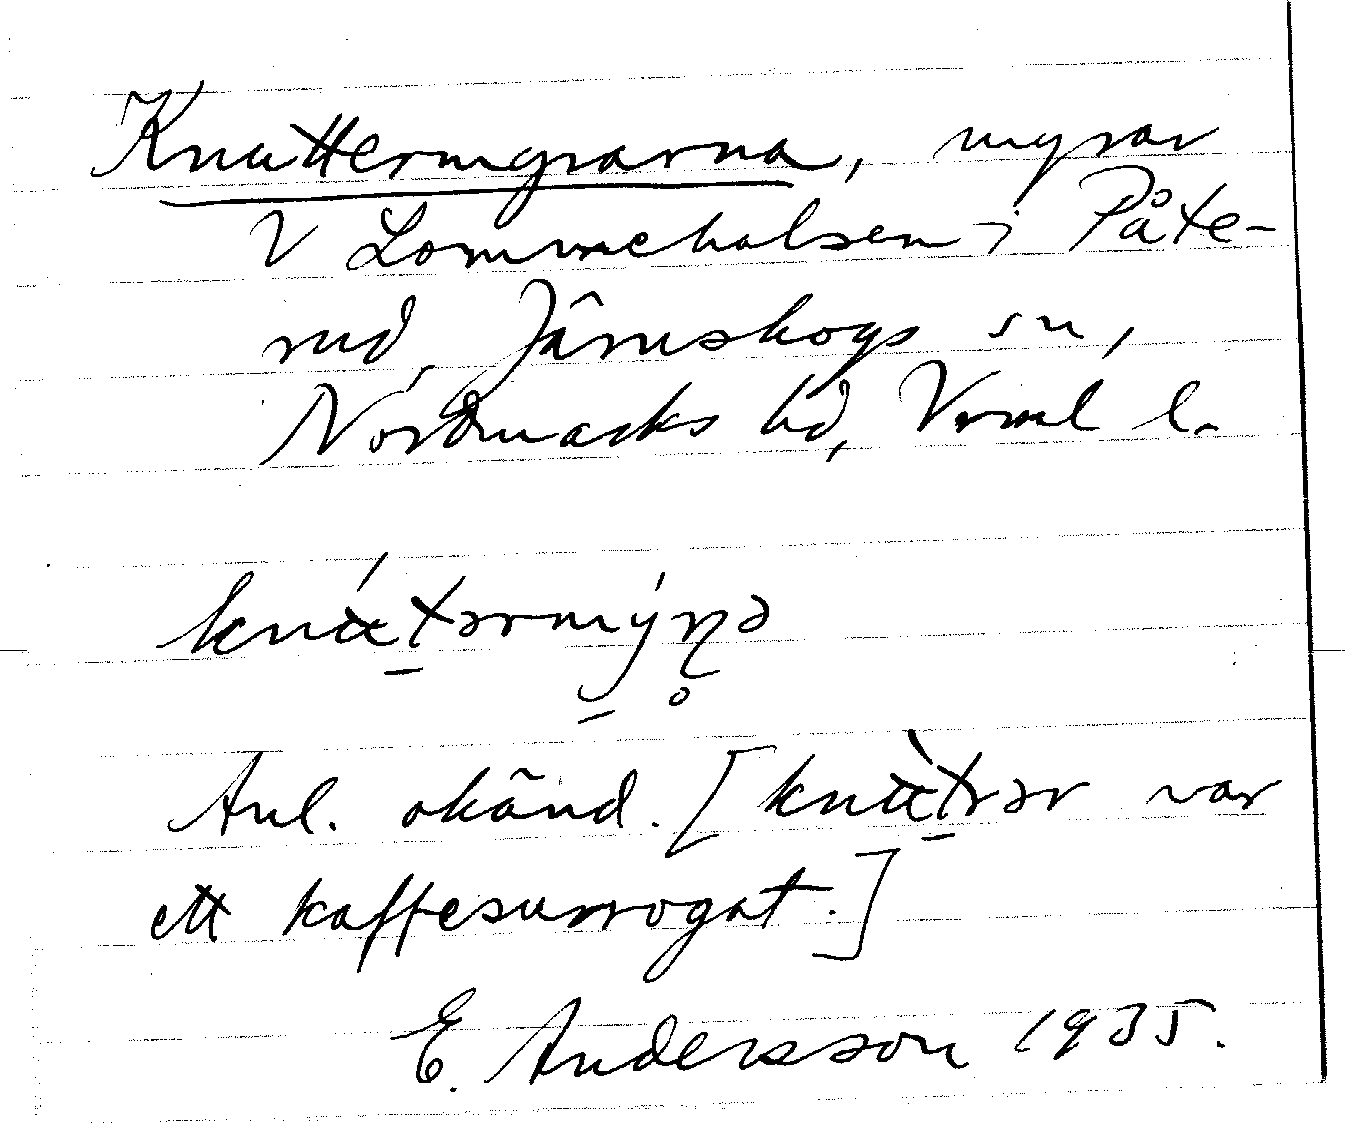 Knattermyrarna, myrar
V Lommehalsen i Påte-
rud, Järnskogs sn,
Nordmarks hd, Vrml l.
Anl. okänd. [ var
ett kaffesurrogat.]
E. Andersson 1935.